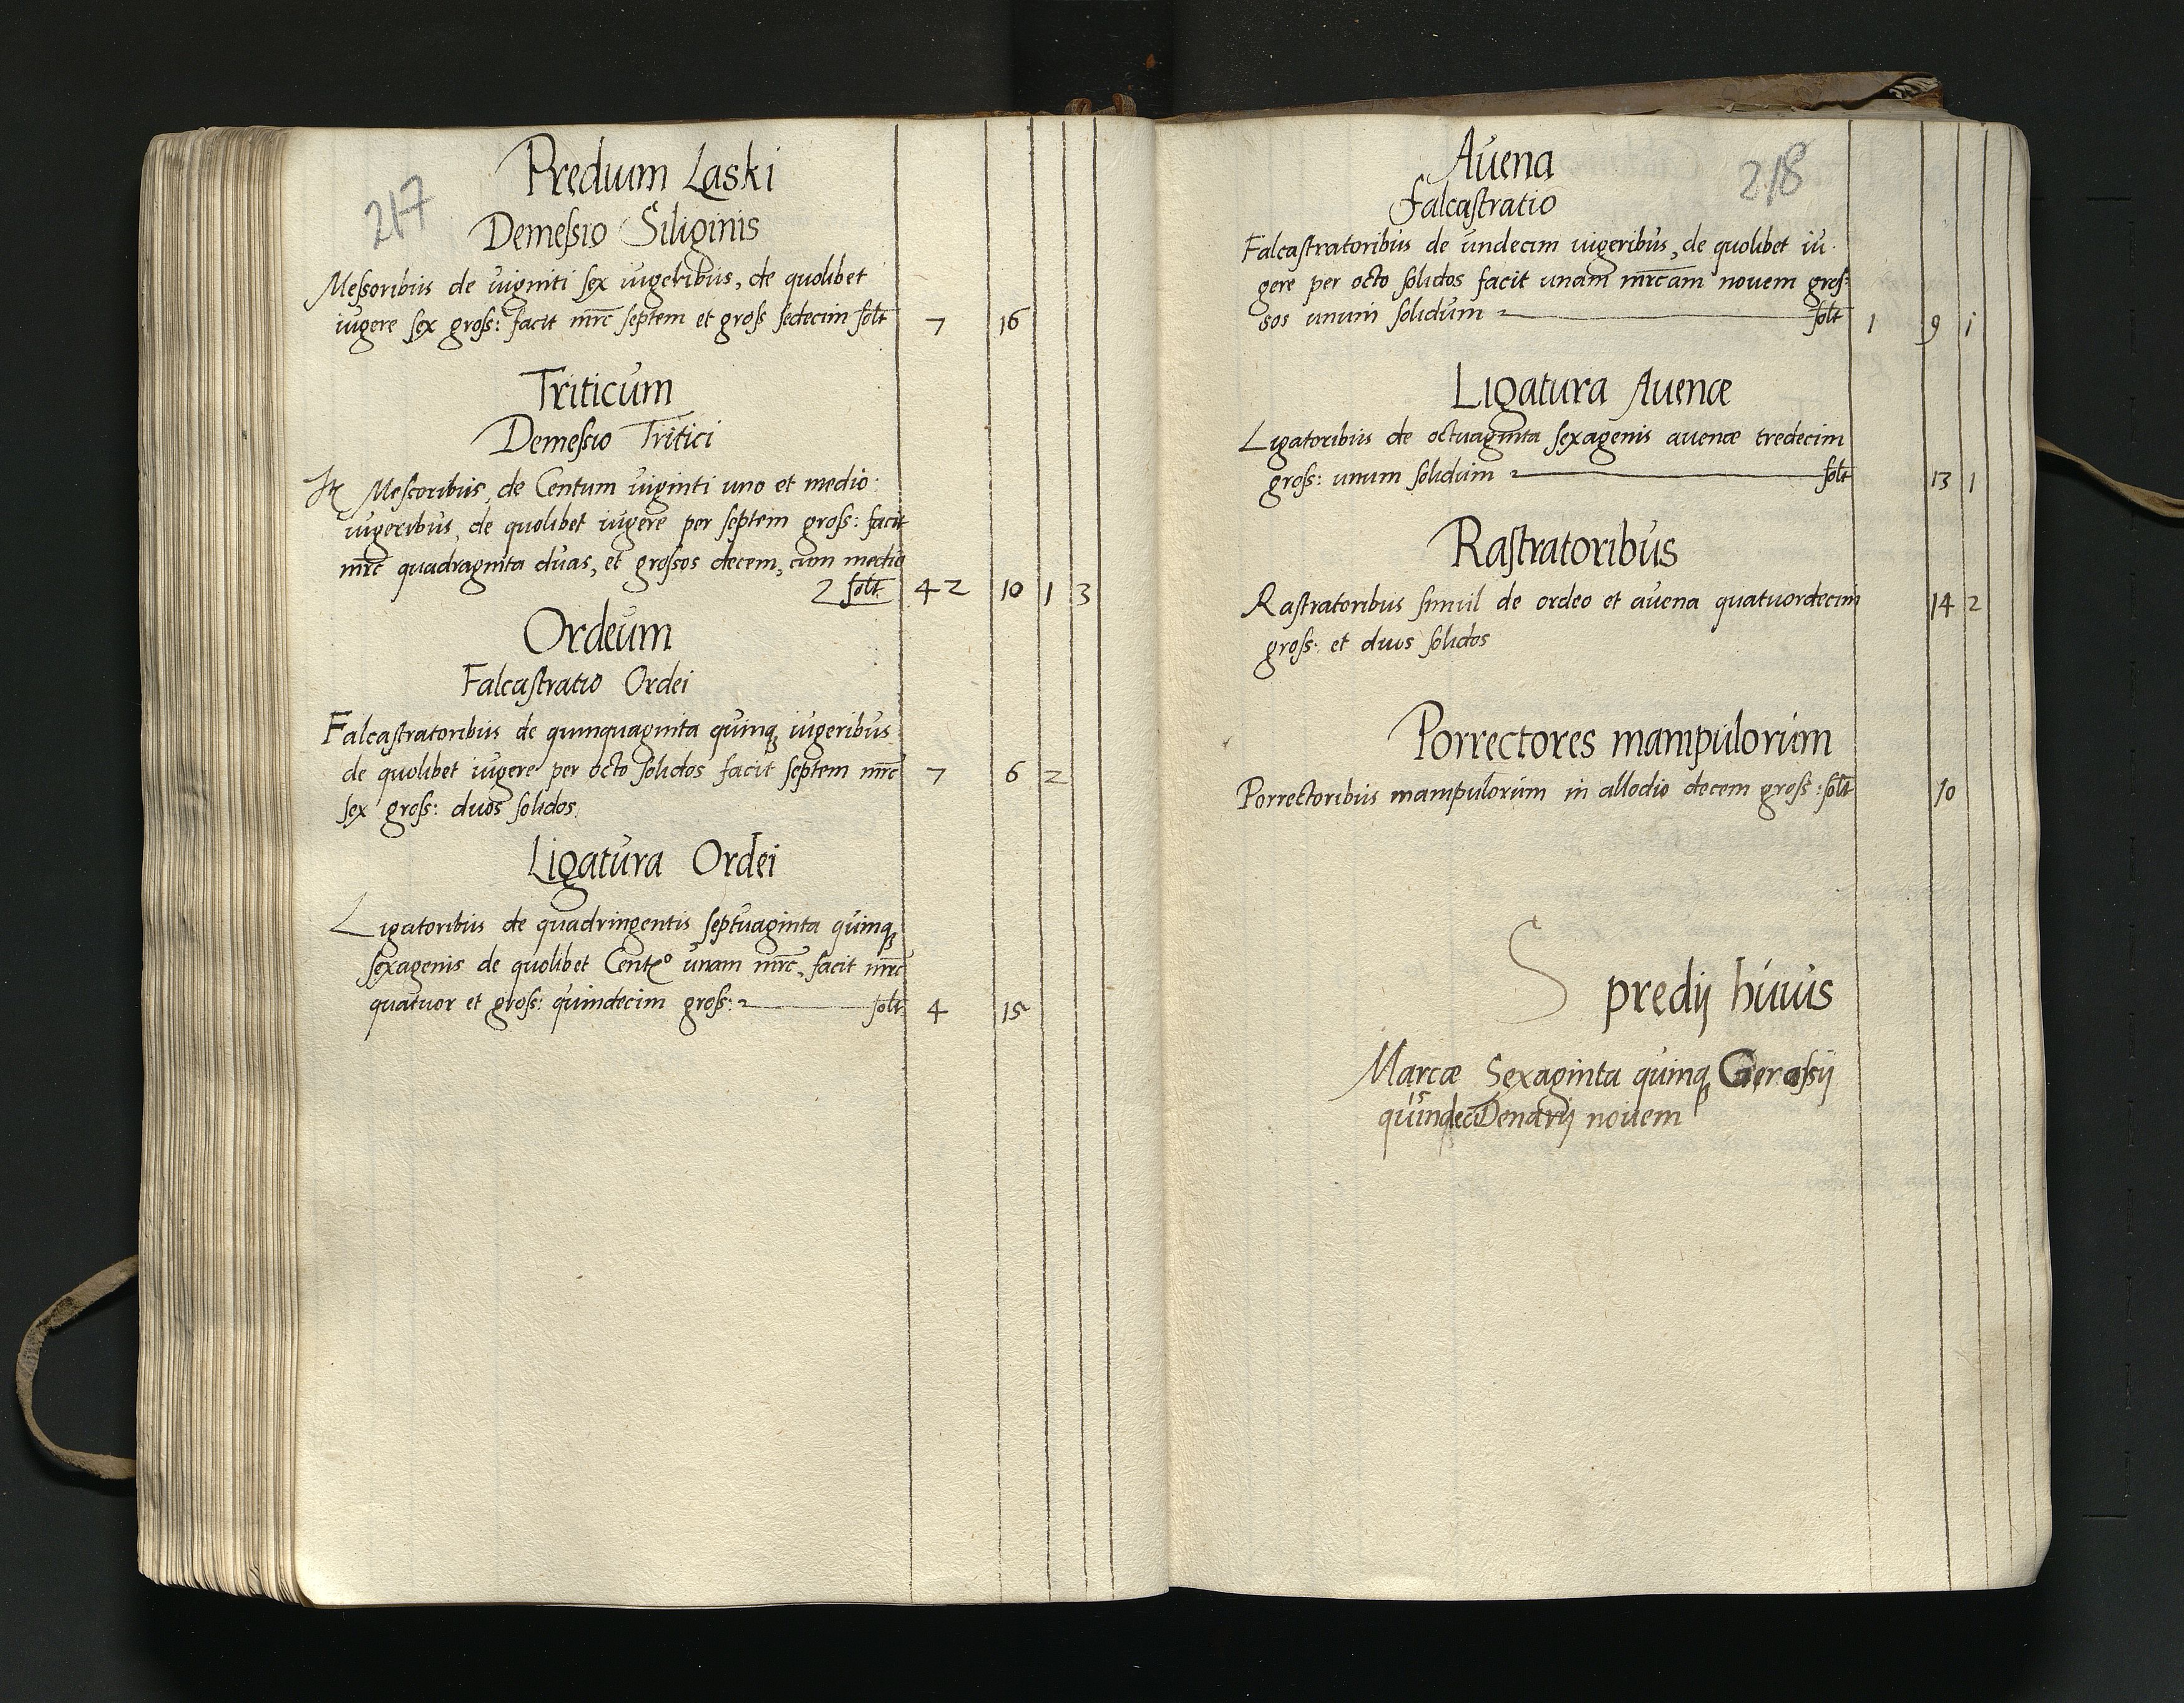 217
Predium Laski
Demeßio Siliginis
Meßoribus de viginti sex iugeribus, de quolibet
iugere sex gross: facit mrc septem et gross sedecim solt 7 16
Triticum
Demeßio Tritici
Messoribus, de Centum viginti uno et medio
iugeribus, de quolibet iugere per septem gross: facit
mrc quadraginta duas, et grossos decem, cum medio
2 solt. 42 10 1 3
Ordeum
Falcastratio Ordei
Falcastratoribus de quinquaginta quinq iugeribus
de quolibet iugere per octo solidos facit septem mrc 7 6 2
sex gross: duos solidos.
Ligatura Ordei
Ligatoribus de quadringentis septuaginta quinq
sexagenis de quolibet unam mrc, facit mrc
quatuor et gross: quindecim gross: solt 4 15
218
Auena
Falcastratio
Falcastratoribus de undecim iugeribus, de quolibet iu-
gere per octo solidos facit unam mrcam nouem gros-
sos unum solidum solt 1 9 1
Ligatura Auenæ
Ligatoribus de octuaginta sexagenis auenæ tredecim
gross: unum solidum solt 13 1
Rastratoribus
Rastratoribus simul de ordeo et auena quatuordecim 14 2
gross: et duos solidos
Porrectores manipulorum
Porrectoribus manipulorum in allodio decem gross: solt 10
S predij huius
Marcæ Sexaginta quinq Grossij
quindeci Denarij nouem